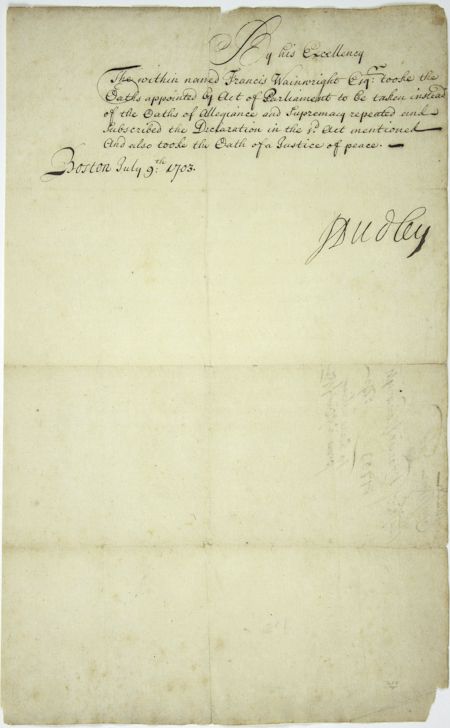 By his Excellency
The within named Francis Wainwright Esqr. tooke the
Oaths appointed by Act of Parliament to be taken instead
of the Oaths of Allegiance and Supremacy repeated and
Subscribed the Declaration in the sd. Act mentioned
And also tooke the Oath of a Justice of peace.
Boston July 9th: 1703.
JDudley